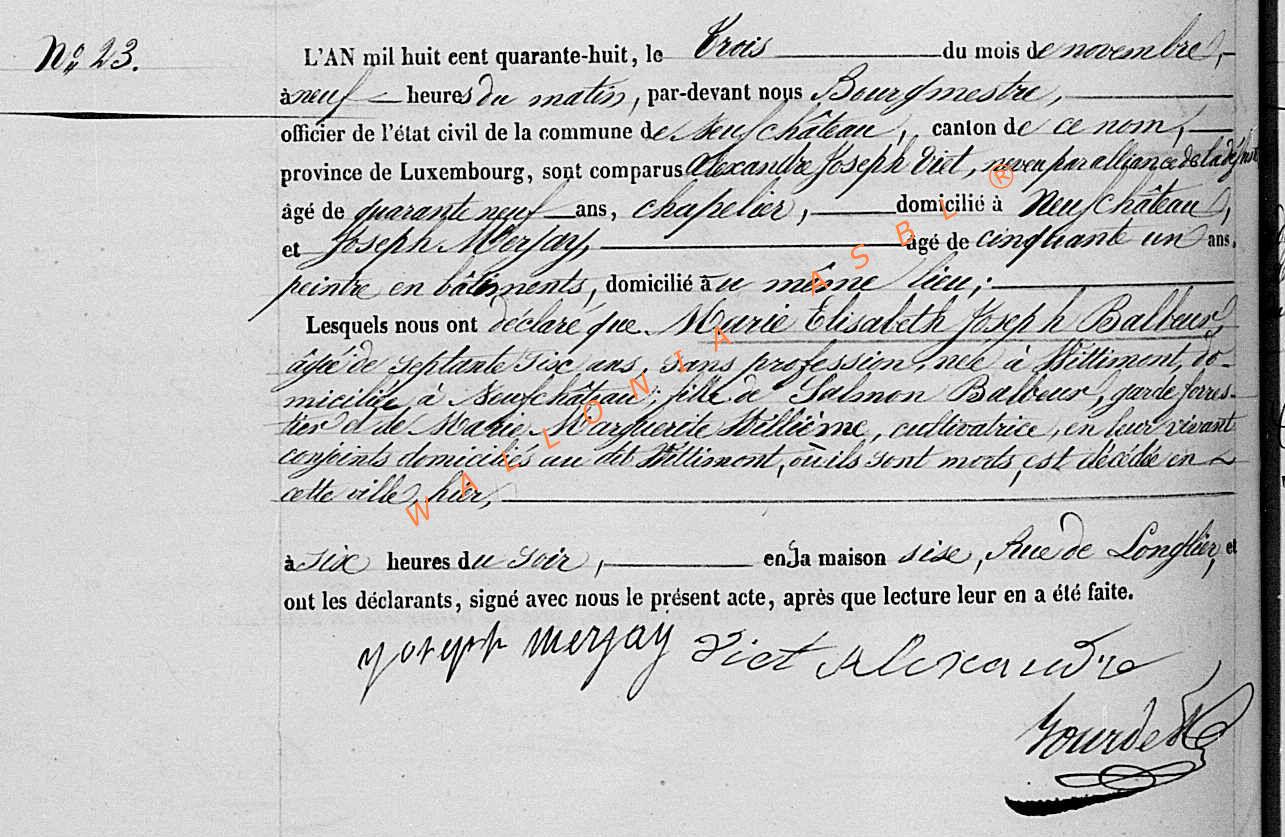 N.º 23.
L'AN mil huit cent quarante-huit, le Trois du mois de novembre,
à neuf heures du matin, par-devant nous Bourgmestre,
officier de l'état civil de la commune de Neufchâteau, canton de ce nom,
province de Luxembourg, sont comparus Alexandre Joseph Viot, neveu par alliance de la défunte
âgé de quarante neuf ans, chapelier, domicilié à Neufchâteau,
et Joseph Merjay, âgé de cinquante un ans,
peintre en bâtiments, domicilié au même lieu;
Lesquels nous ont déclaré que Marie Elisabeth Joseph Balbeur,
âgée de septante six ans, sans profession, née à Wittimont, do-
miciliée à Neufchâteau; fille de Salmon Balbeur, garde forres-
tier et de Marie Marguerite Willième, cultivatrice, en leur vivant
conjoints domiciliés au dit Wittimont, où ils sont morts, est décédée en
cette ville, hier,
à six heures du soir, en la maison sise, Rue de Longlier, et
ont les déclarants, signé avec nous le présent acte, après que lecture leur en a été faite.
joseph merjay Viot Alexandre
WALLONIA ASBL ®